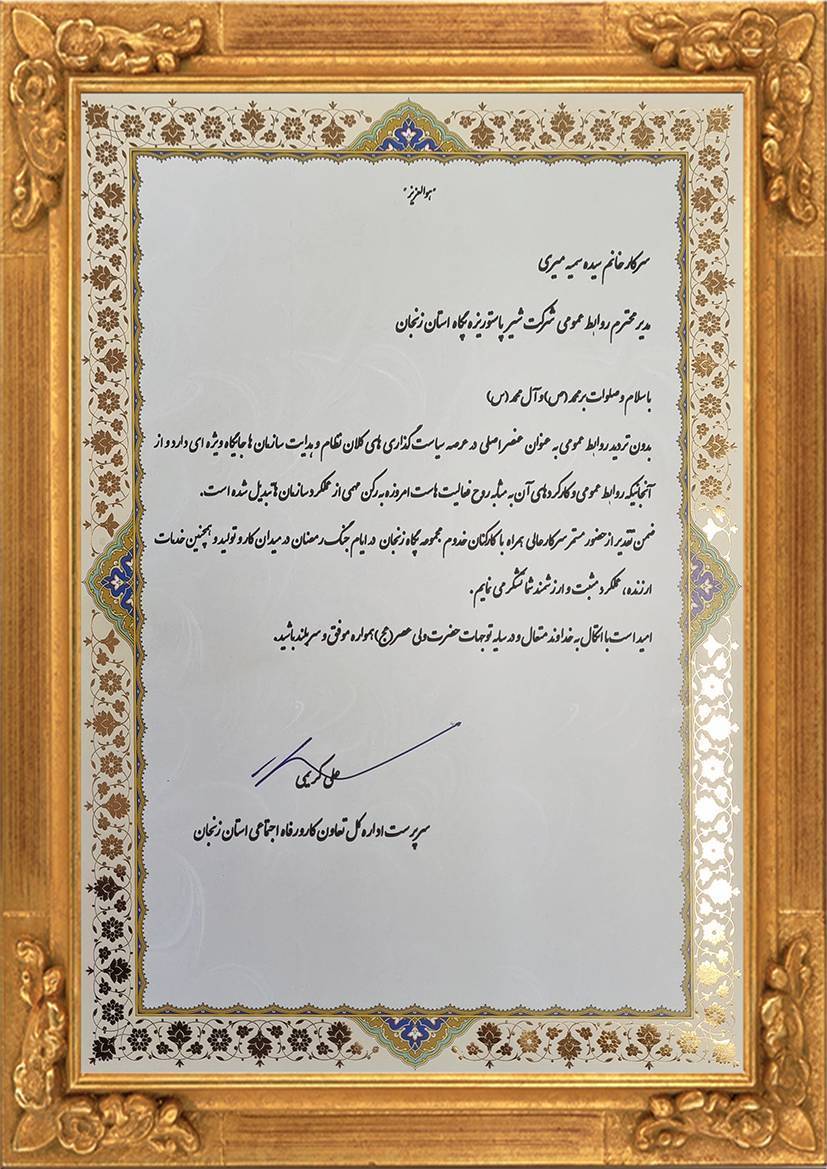 "هوالعزیز"
سرکار خانم سیده سمیه میری
مدیر محترم روابط عمومی شرکت شیر پاستوریزه پگاه استان زنجان
با سلام و صلوات بر محمد (ص) و آل محمد (س)
بدون تردید روابط عمومی به عنوان عنصر اصلی در عرصه سیاست گذاری های کلان نظام و هدایت سازمان ها جایگاه ویژه ای دارد و از
آنجائیکه روابط عمومی و کارکردهای آن به مثابه روح فعالیت هاست امروزه به رکن مهمی از عملکرد سازمان ها تبدیل شده است.
ضمن تقدیر از حضور مستمر سرکار عالی همراه با کارکنان خدوم مجموعه پگاه زنجان در ایام جنگ رمضان در میدان کار و تولید و همچنین خدمات
ارزنده، عملکرد مثبت و ارزشمند شما تشکر می نمایم.
امید است با اتکال به خداوند متعال و در سایه توجهات حضرت ولی عصر (عج) همواره موفق و سربلند باشید.
علی کریمی
سرپرست اداره کل تعاون کار و رفاه اجتماعی استان زنجان